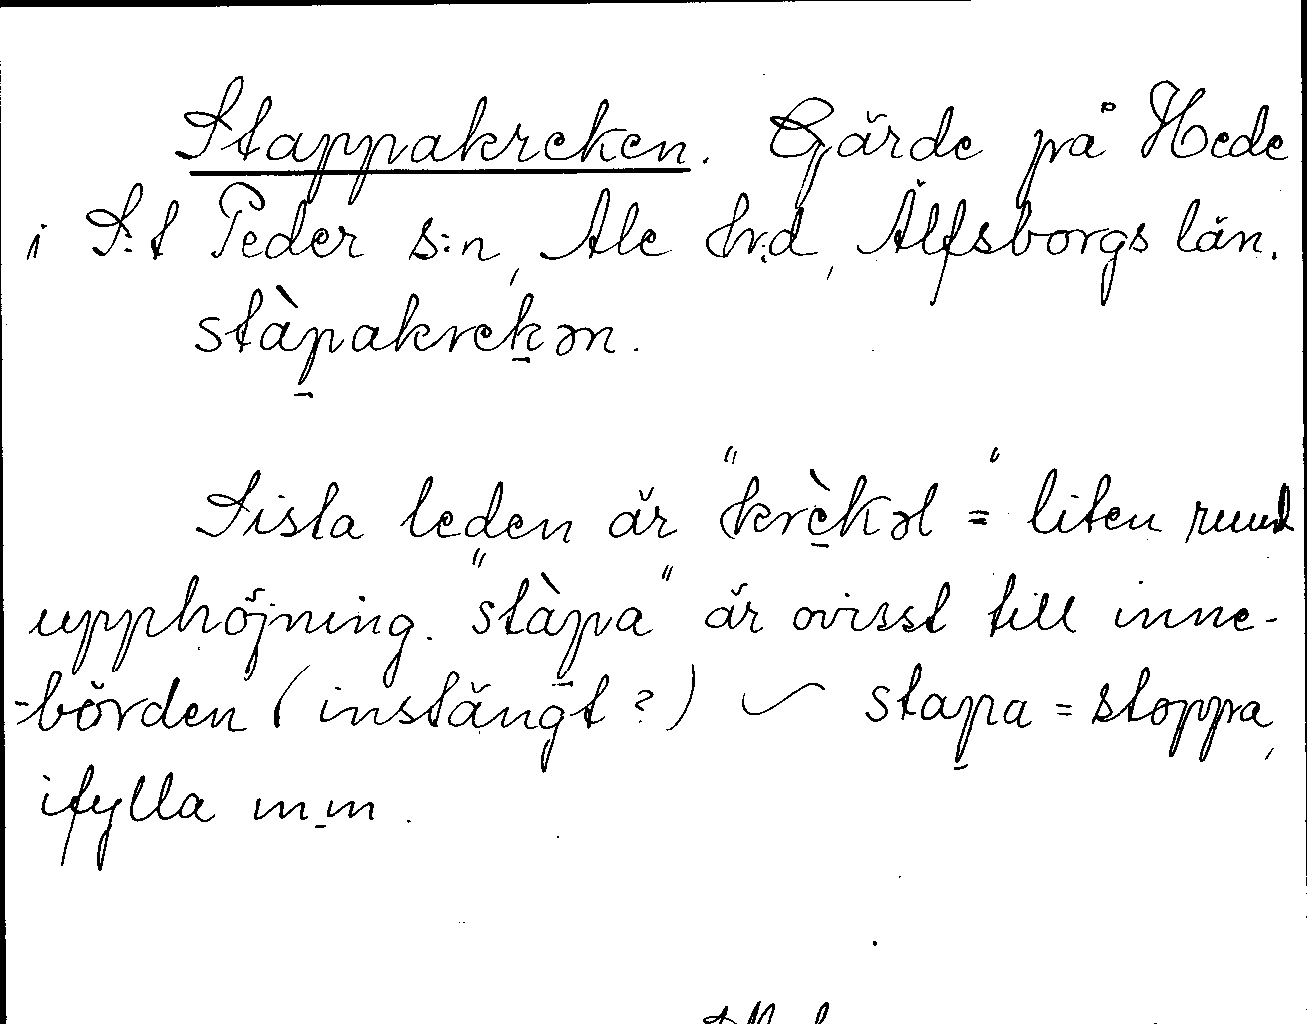 Stappakreken. Gärde på Hede
i S:t Peder s:n, Ale hr:d, Älfsborgs län.
stàp̱akreḵən.
Sista leden är "krè̱kəl" = liten rund
upphöjning. "stàp̱a" är ovisst till inne-
-börden (instängt?) ~ stap̱a = stoppa,
ifylla m.m.